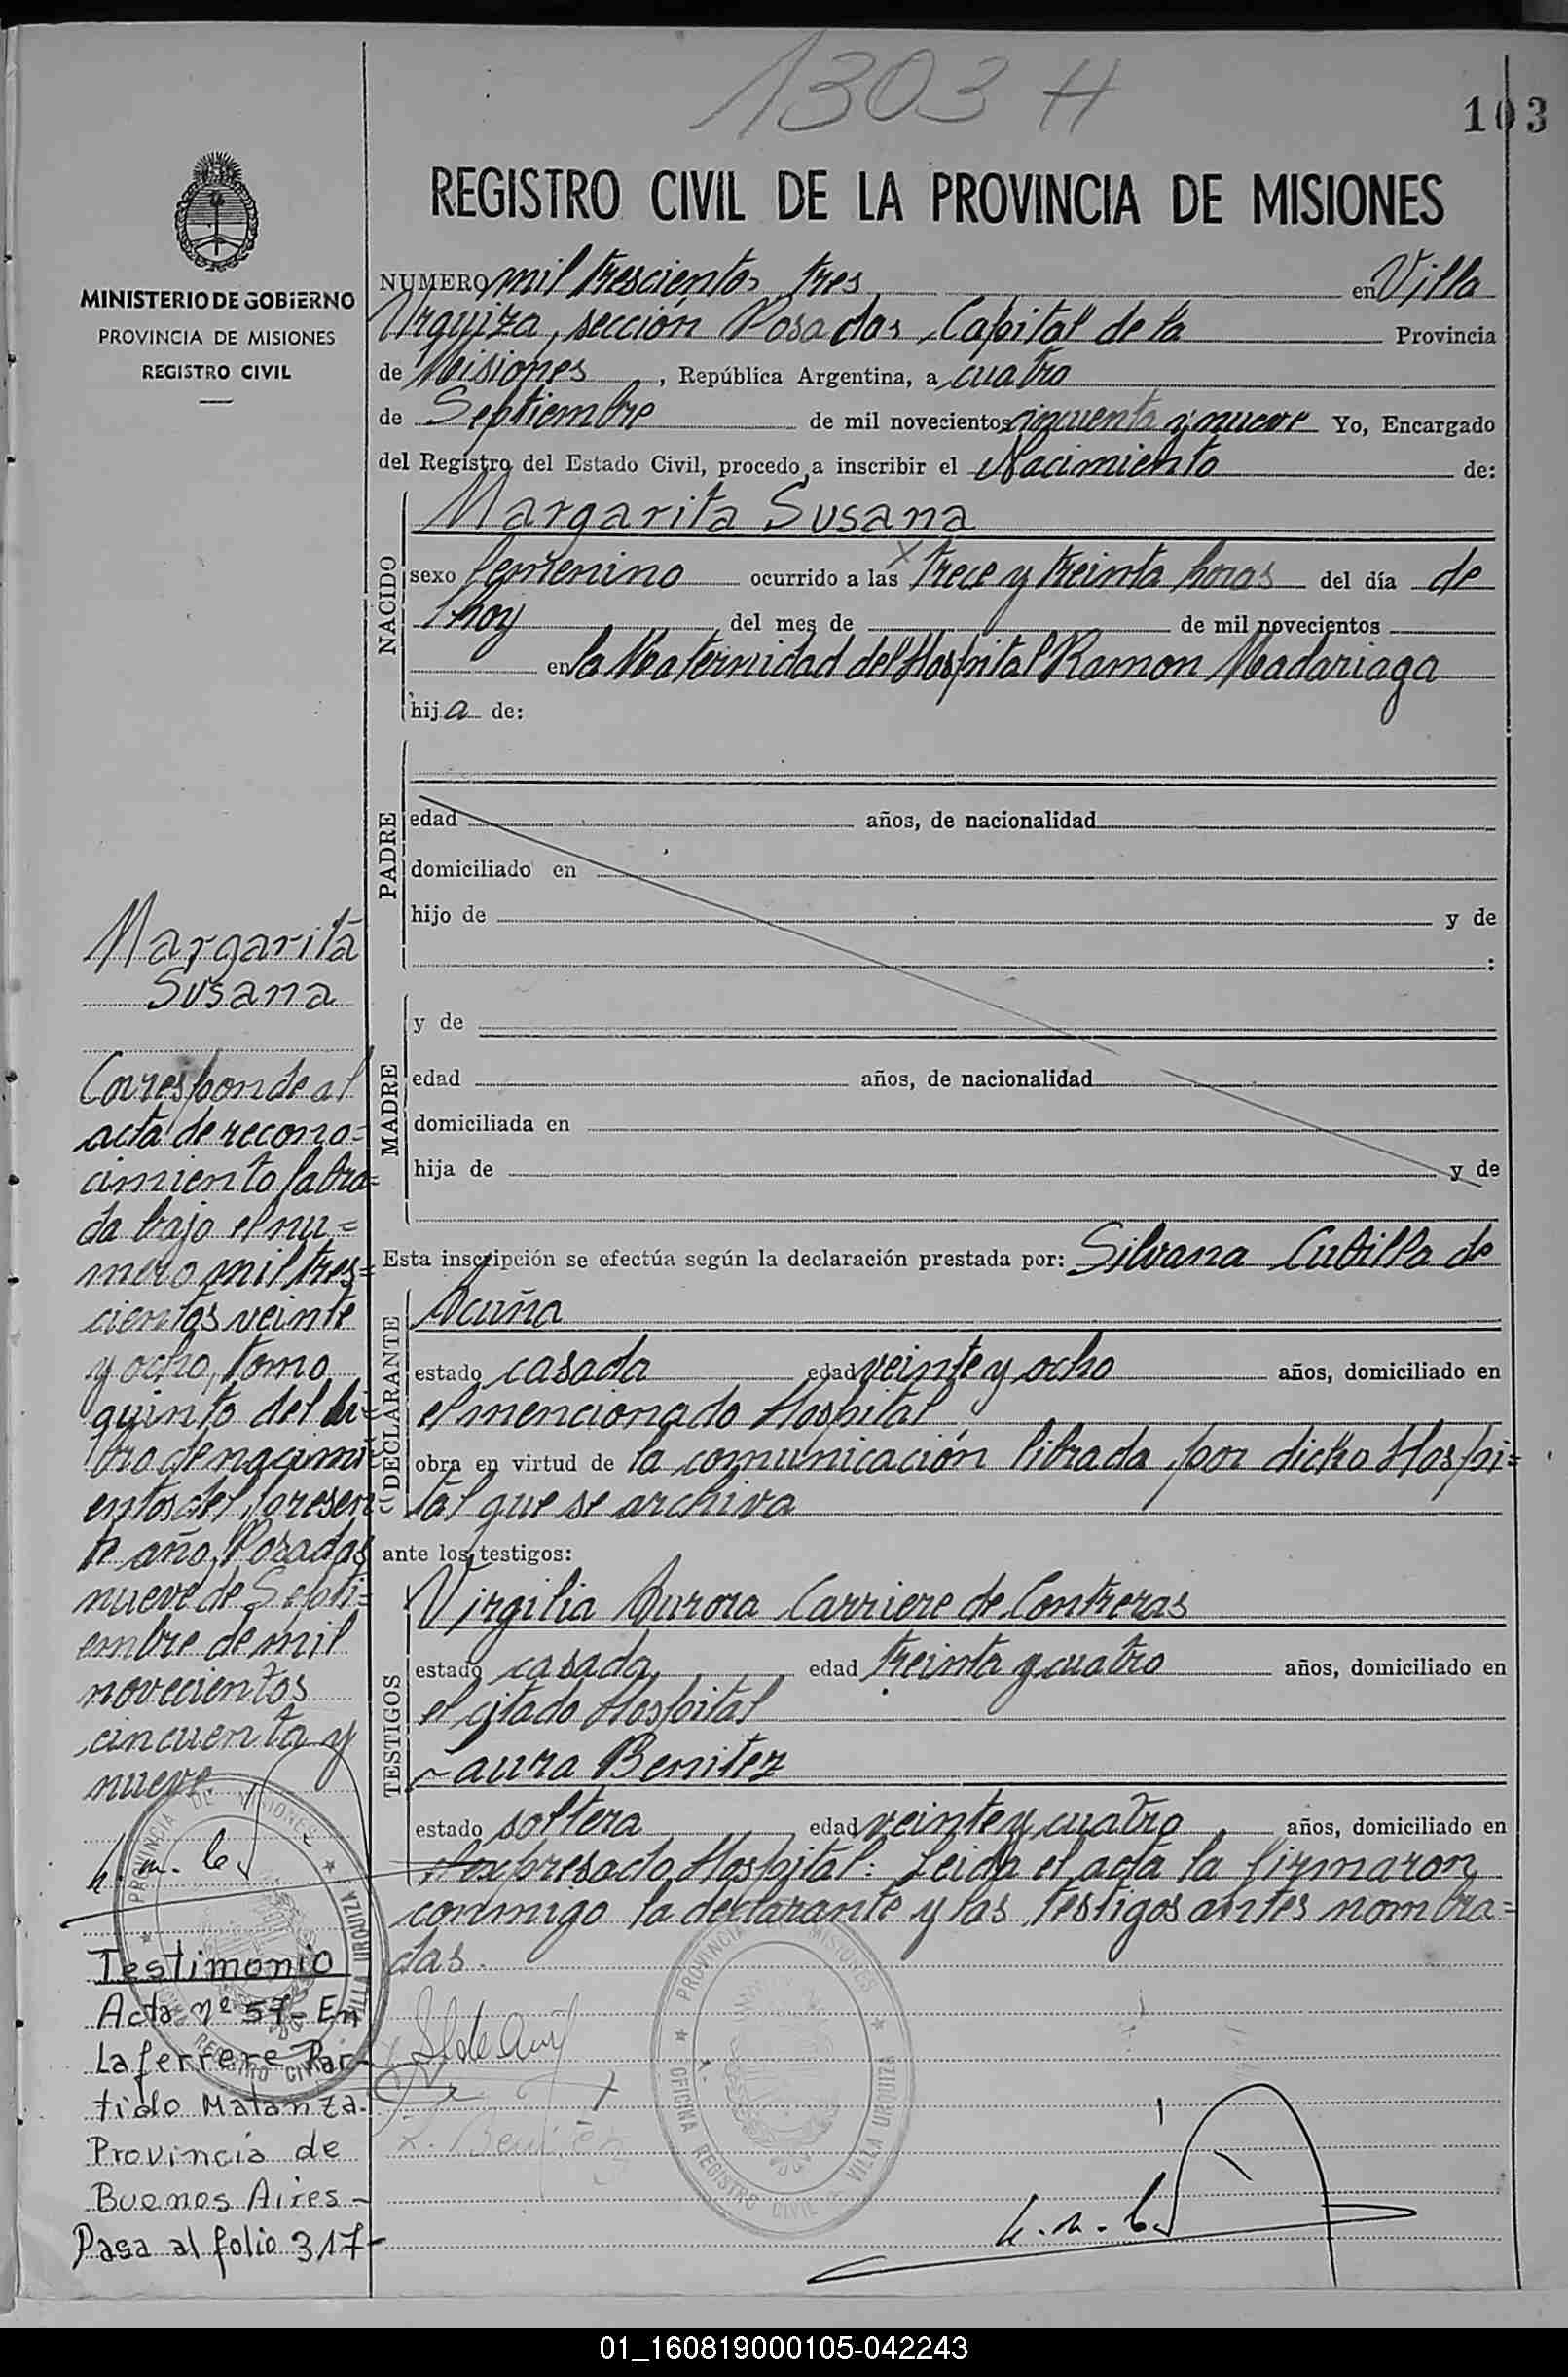 1303 H
103
REGISTRO CIVIL DE LA PROVINCIA DE MISIONES
MINISTERIO DE GOBIERNO
PROVINCIA DE MISIONES
REGISTRO CIVIL
NUMERO mil trescientos tres en Villa
Urquiza, sección Posadas, Capital de la Provincia
de Misiones, República Argentina, a cuatro
de Septiembre de mil novecientos cincuenta y nueve Yo, Encargado
del Registro del Estado Civil, procedo a inscribir el Nacimiento de:
NACIDO
Margarita Susana
sexo femenino ocurrido a las trece y treinta horas del día de
hoy del mes de de mil novecientos
en la Maternidad del Hospital Ramon Madariaga
hija de:
PADRE
edad años, de nacionalidad
domiciliado en
hijo de y de
:
MADRE
y de
edad años, de nacionalidad
domiciliada en
hija de y de
Esta inscripción se efectúa según la declaración prestada por: Silvana Cubilla de
DECLARANTE
Acuña
estado casada edad veinte y ocho años, domiciliado en
el mencionado Hospital
obra en virtud de la comunicación librada por dicho Hospi=
tal que se archiva
ante los testigos:
TESTIGOS
Virgilia Aurora Carriere de Contreras
estado casada edad treinta y cuatro años, domiciliado en
el citado Hospital
Laura Benitez
estado soltera edad veinte y cuatro años, domiciliado en
el expresado Hospital: Leida el acta la firmaron
conmigo la declarante y las testigos antes nombra=
das.
L. Benitez
PROVINCIA DE MISIONES
OFICINA REGISTRO CIVIL - VILLA URQUIZA
Margarita
Susana
Corresponde al
acta de recono=
cimiento labra=
da bajo el nu=
mero mil tres=
cientos veinte
y ocho, tomo
quinto del li=
bro de nacimi=
entos del presen=
te año, Posadas
nueve de Septi=
embre de mil
novecientos
cincuenta y
nueve.
PROVINCIA DE MISIONES
OFICINA REGISTRO CIVIL VILLA URQUIZA
Testimonio
Acta nº 57- En
Laferrere Par-
tido Matanza.
Provincia de
Buenos Aires-
Pasa al folio 317-
01_160819000105-042243